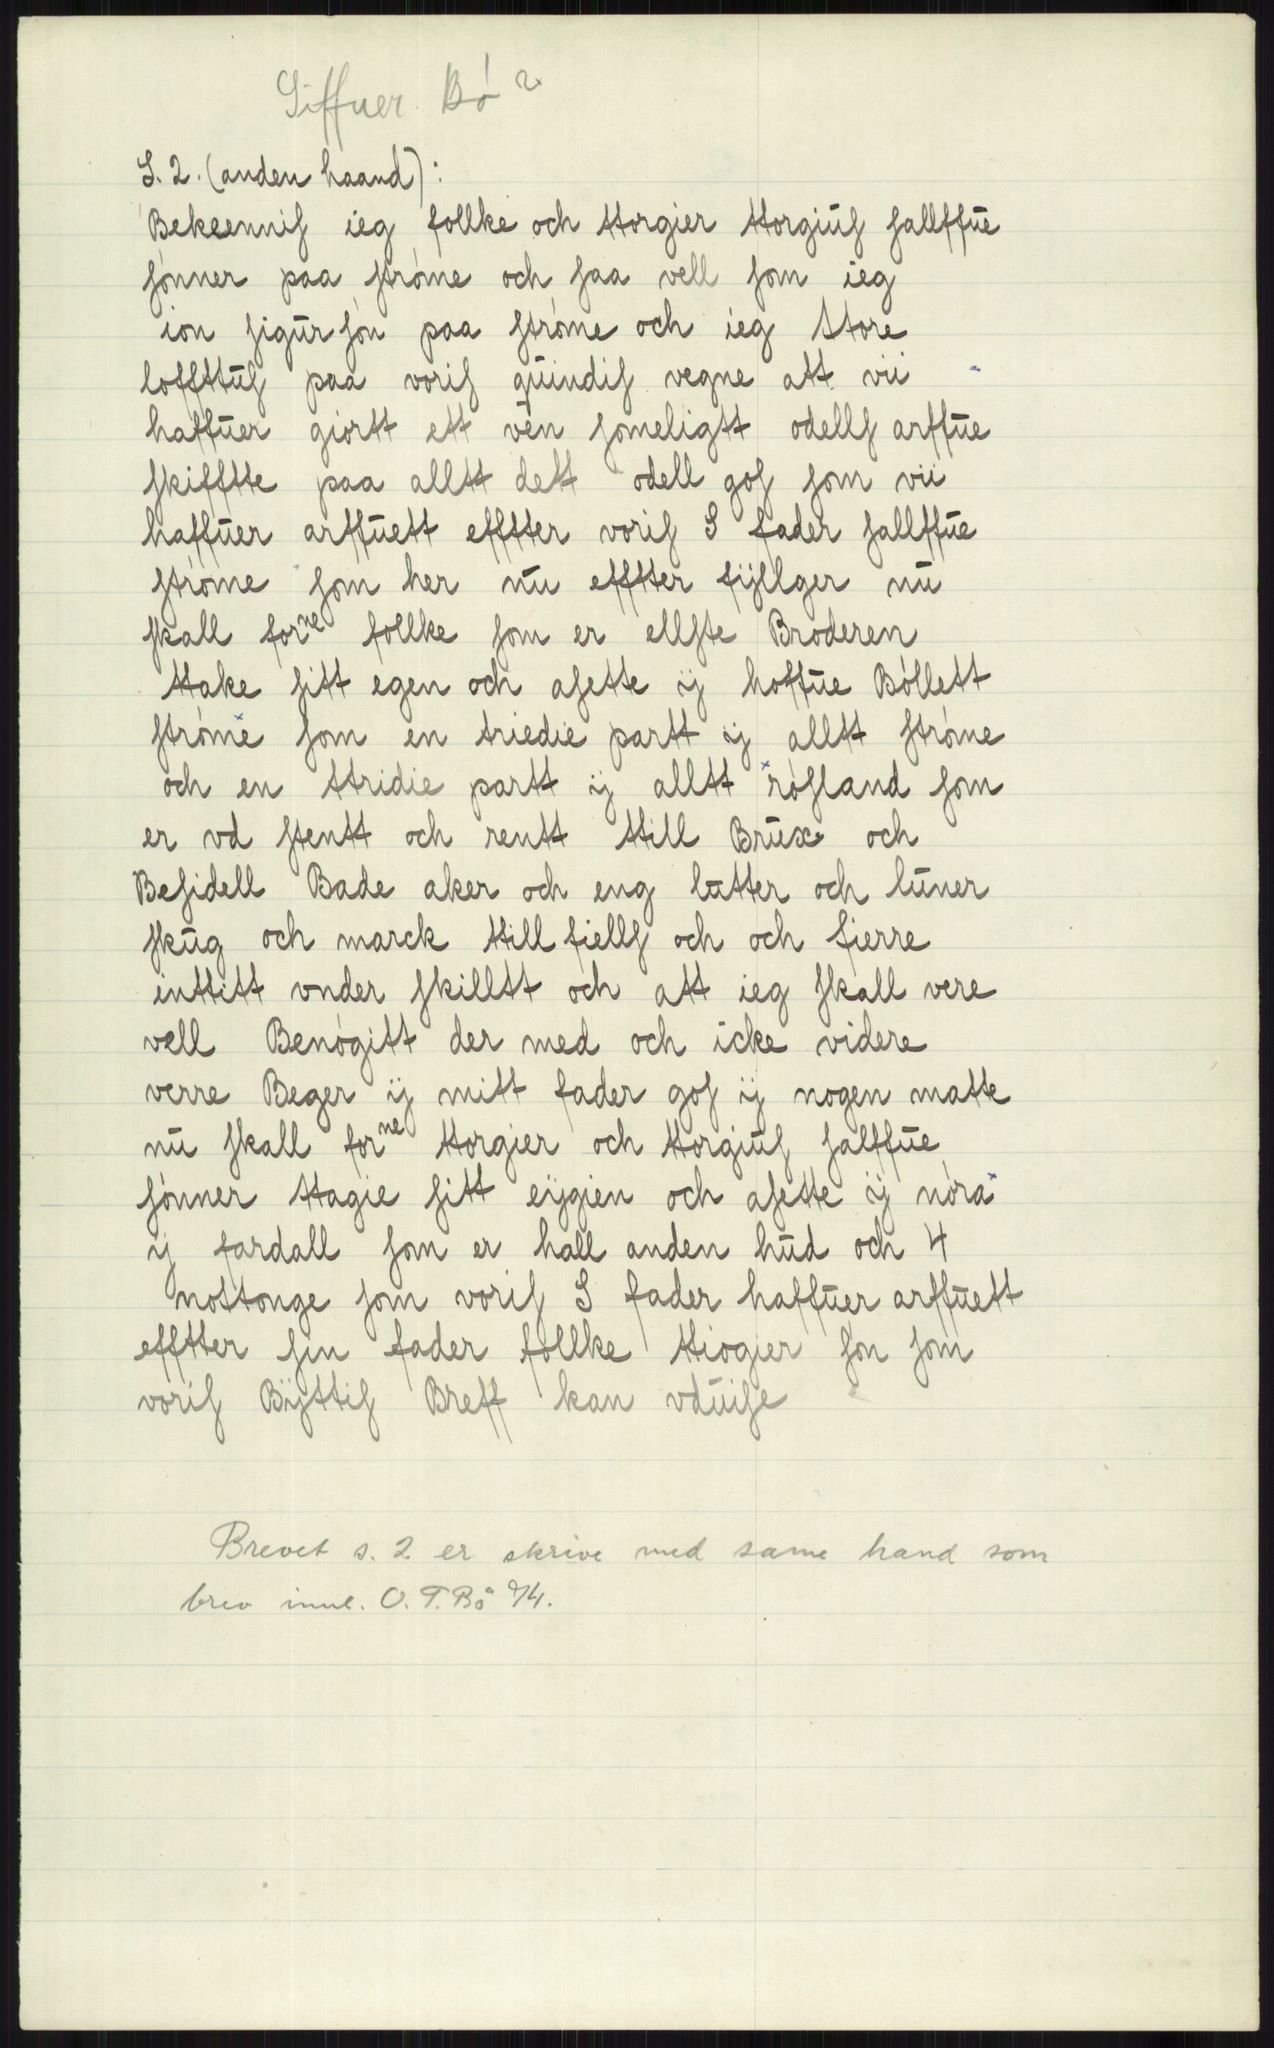 Siffuer Bó 2
S. 2. (anden haand):
Bekeennis ieg follke och ttorgier ttorgius sallffue
sónner paa stróme och saa vell som ieg
ion sigursón paa stróme och ieg store
loffttus paa voris quindis vegne att vii
haffuer giortt ett ven someligtt odells arffue
skifftte paa alltt dett odell gos som vii
haffuer arffuett efftter voris S fader sallffue
stróme som her nu efftter fÿllger nu
skall forne follke som er ellste Broderen
ttake sitt egen och asette ij hoffue Bóllett
stróme som en triedie partt ij alltt stróme
och en ttridie partt ij alltt rósland som
er vd stentt och rentt ttill Brux och
Besidell Bade aker och eng latter och luner
skug och marck ttill fiells och och fierre
inttitt vnder skilltt och att ieg skall vere
vell Benógitt der med och icke videre
verre Beger ij mitt fader gos ij nogen matte
nu skall forne ttorgier och ttorgius salffue
sónner ttagie sitt eÿgien och asette ij nóra
ij fardall som er hall anden hud och 4
nottonge som voris S fader haffuer arffuett
efftter sin fader follke ttiogier són som
voris Bÿttis Breff kan vduise
Brevet s. 2 er skrive med same hand som
brev innl. O. T. Bö 74.